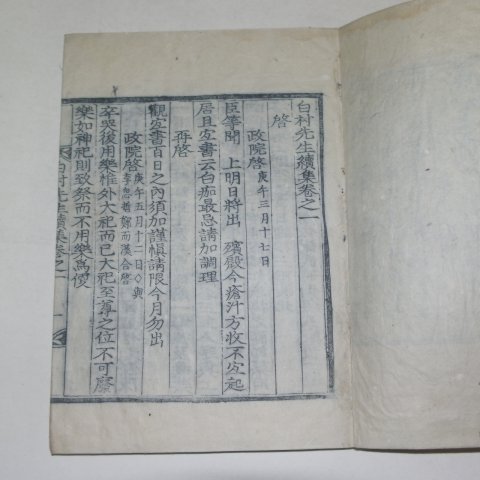 白村先生續集卷之一
啓
政院啓 庚午三月十七日
臣等聞 上明日將出 殯殿今瘡汁方收不宜起
居且宓書云白痂最忌請加調理
再啓
觀宓書百日之內須加謹愼請限今月勿出
政院啓 庚午五月十一日○與
李思曾鄭而漢合啓
卒哭後用樂惟外大祀而已大祀至尊之位不可廢
樂如神祀則致祭而不用樂爲便
白村先生續集卷之一